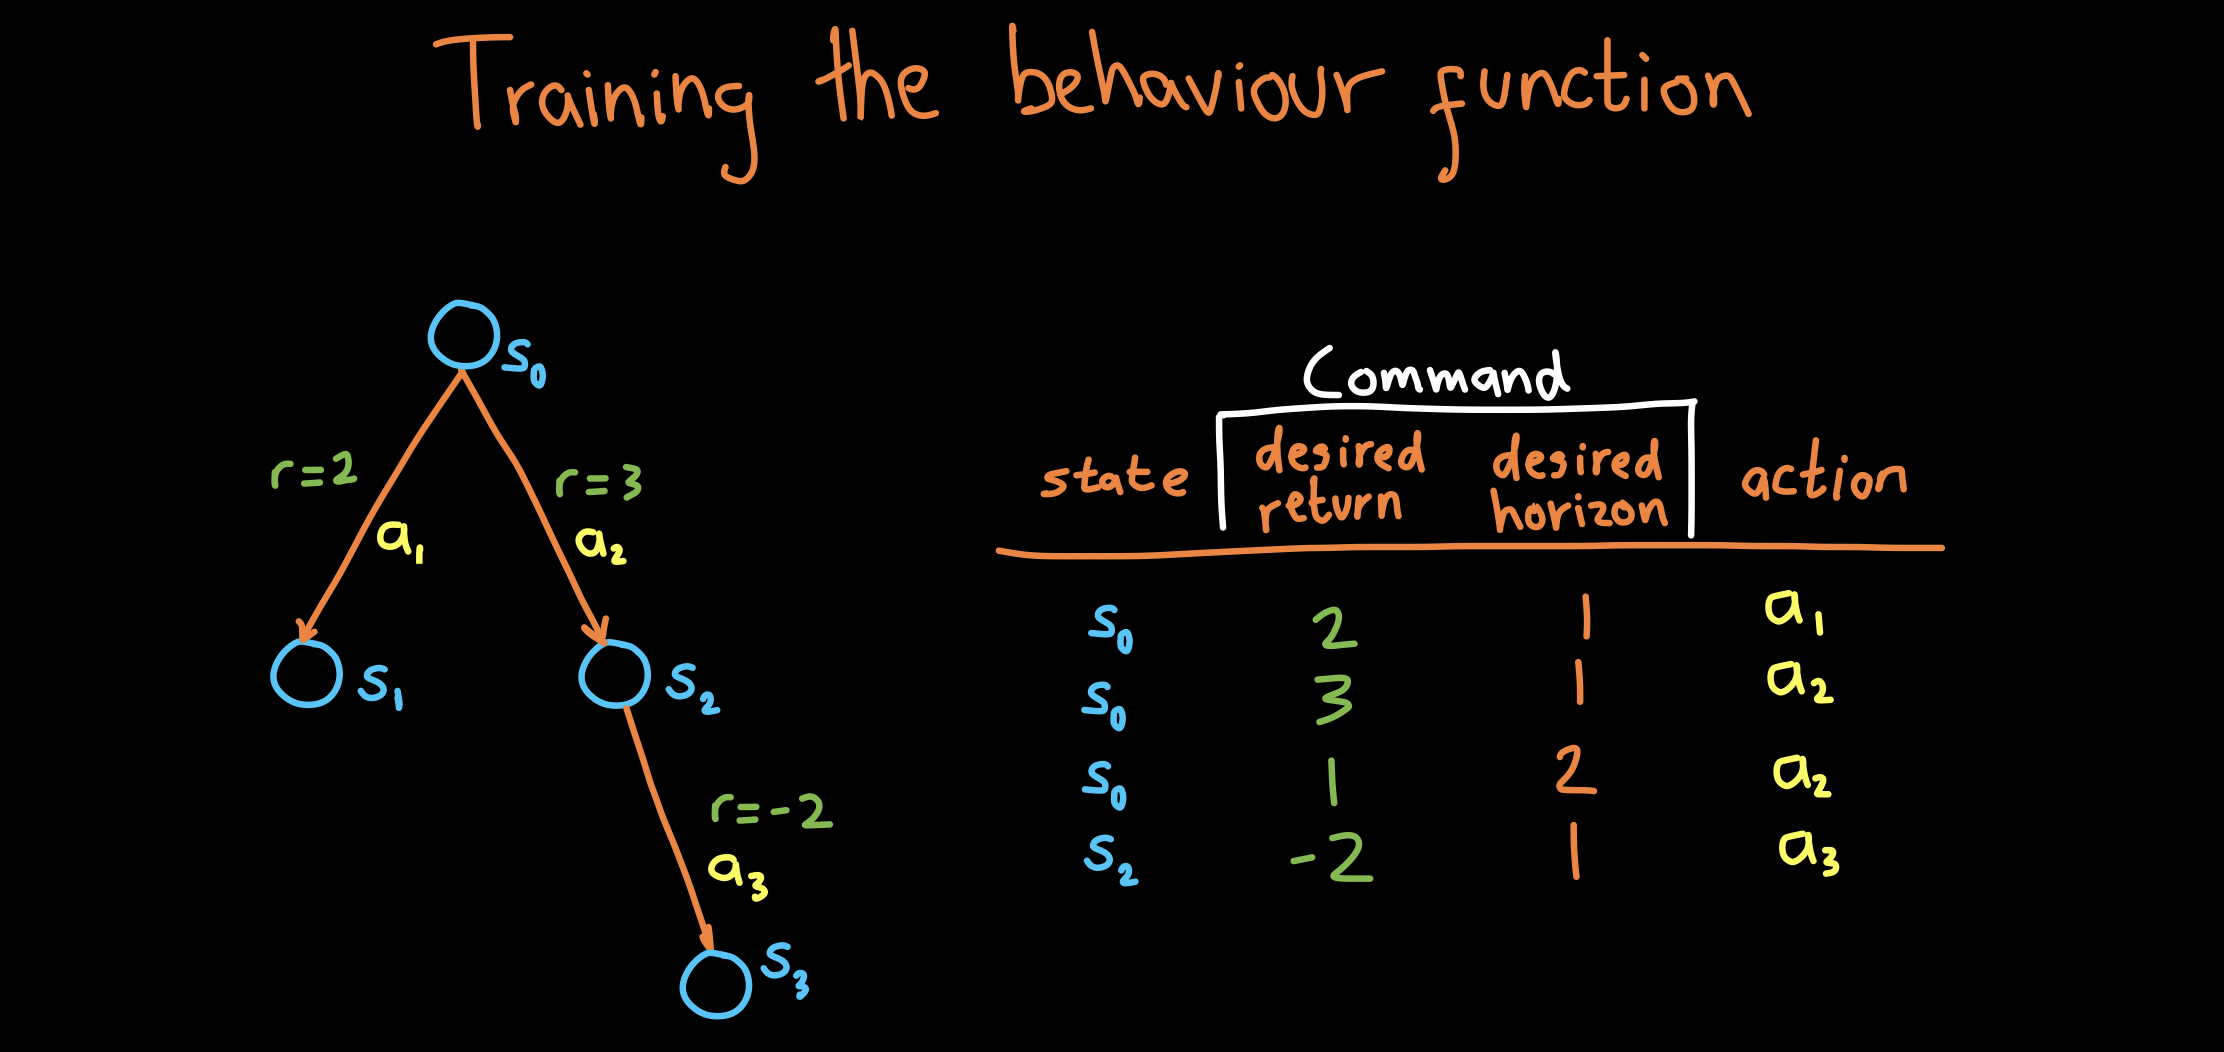 Training the behaviour function
s₀
r=2
a₁
r=3
a₂
s₁
s₂
r=-2
a₃
s₃
Command
state desired return desired horizon action
s₀ 2 1 a₁
s₀ 3 1 a₂
s₀ 1 2 a₂
s₂ -2 1 a₃